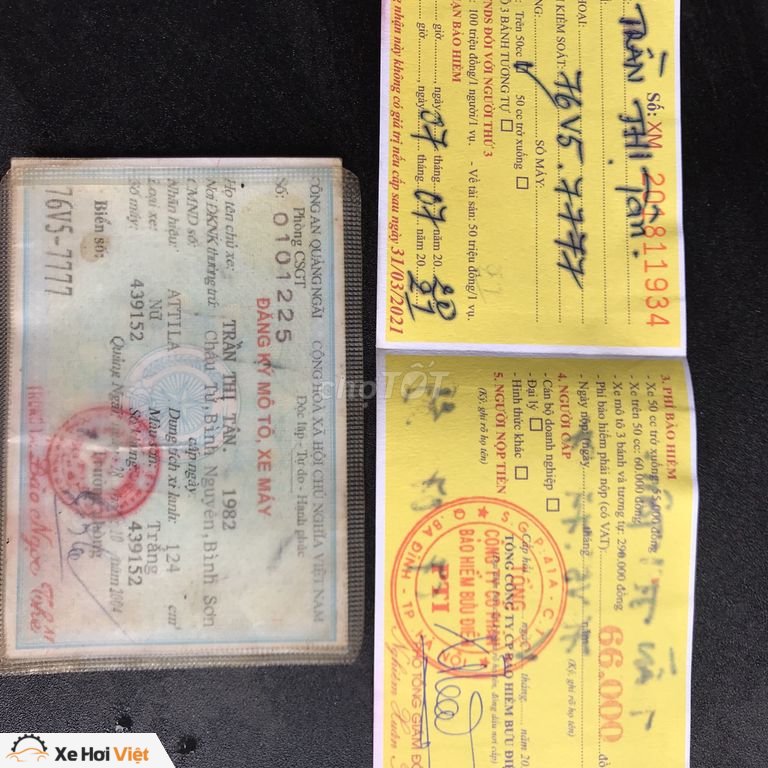 CÔNG AN QUẢNG NGÃI
Phòng CSGT
SỐ: 0101225
CỘNG HOÀ XÃ HỘI CHỦ NGHĨA VIỆT NAM
Độc lập - Tự do - Hạnh phúc
ĐĂNG KÝ MÔ TÔ, XE MÁY
Họ tên chủ xe: TRẦN THỊ TÂN. 1982
Nơi ĐKNK thường trú: Châu Tử, Bình Nguyên, Bình Sơn
CMND số: cấp ngày
Nhãn hiệu: ATTILA Dung tích xi lanh: 124 cm³
Loại xe: Nữ Màu sơn: Trắng
Số máy: 439152 Số khung: 439152
Biển số:
76V5-7777
Quảng Ngãi 10 năm 2004
Trưởng phòng
Số: XM 201811934
TRẦN THỊ TÂN.
THOẠI:
KIỂM SOÁT: 76V5.7777
SỐ MÁY:
- Trên 50cc
50 cc trở xuống
3 BÁNH TƯƠNG TỰ
NDS ĐỐI VỚI NGƯỜI THỨ 3
100 triệu đồng/1 người/1 vụ. - Về tài sản: 50 triệu đồng/1 vụ.
BẢO HIỂM
giờ, ngày 07 tháng 07 năm 20 20
giờ, ngày 07 tháng 07 năm 20 21
nhận này không có giá trị nếu cấp sau ngày 31/03/2021
3. PHÍ BẢO HIỂM
- Xe 50 cc trở xuống: 55.000 đồng
- Xe trên 50 cc: 60.000 đồng
- Xe mô tô 3 bánh và tương tự: 290.000 đồng
- Phí bảo hiểm phải nộp (có VAT): 66.000 đồ
- Ngày nộp: ngày tháng năm
4. NGƯỜI CẤP
(Ký, ghi rõ họ tên)
- Cán bộ doanh nghiệp
- Đại lý
- Hình thức khác
5. NGƯỜI NỘP TIỀN
(Ký, ghi rõ họ tên)
Cấp hồi ngày tháng năm 20
TỔNG CÔNG TY CP BẢO HIỂM BƯU ĐIỆ
TỔNG
CÔNG TY CỔ PHẦN
BẢO HIỂM BƯU ĐIỆN
PTI
Q. BA ĐÌNH - TP
PHÓ TỔNG GIÁM ĐỐ
chợ TỐT
Xe Hơi Việt